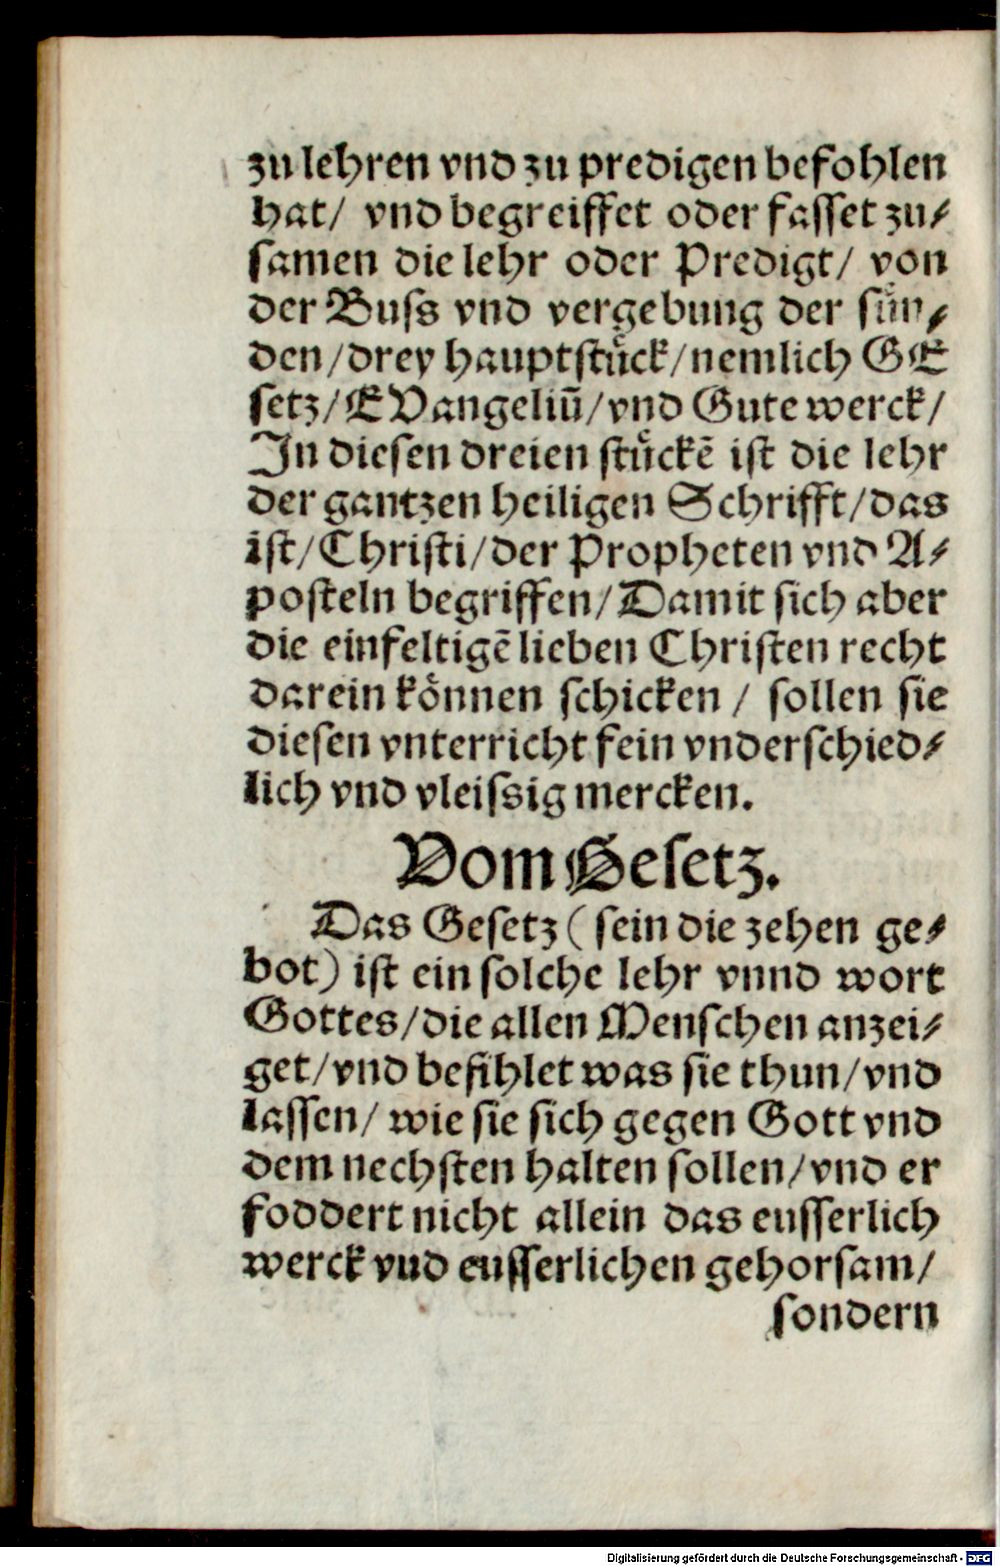 zu lehren vnd zu predigen befohlen
hat/ vnd begreiffet oder fasset zu⸗
samen die lehr oder Predigt/ von
der Buss vnd vergebung der suͤn⸗
den/drey hauptstuͤck/nemlich GE
setz/EVangeliū/vnd Gute werck/
In diesen dreien stuͤckē ist die lehr
der gantzen heiligen Schrifft/das
ist/Christi/der Propheten vnd A⸗
posteln begriffen/Damit sich aber
die einfeltigē lieben Christen recht
darein koͤnnen schicken / sollen sie
diesen vnterricht fein vnderschied⸗
lich vnd vleissig mercken.
Vom Gesetz.
Das Gesetz (sein die zehen ge⸗
bot) ist ein solche lehr vnnd wort
Gottes/die allen Menschen anzei⸗
get/vnd befihlet was sie thun/vnd
lassen/ wie sie sich gegen Gott vnd
dem nechsten halten sollen/vnd er
foddert nicht allein das eusserlich
werck vud eusserlichen gehorsam/
sondern
Digitalisierung gefördert durch die Deutsche Forschungsgemeinschaft - DFG